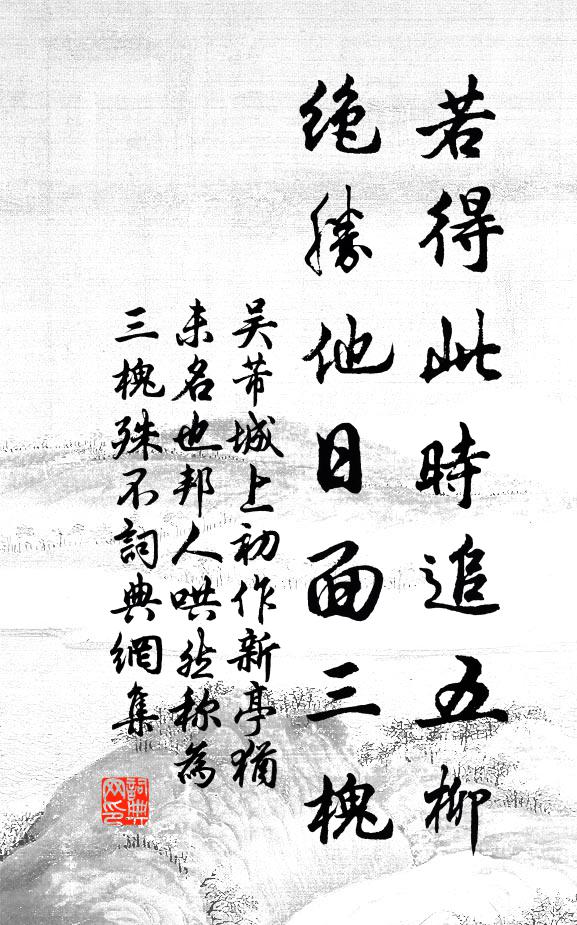 若得此時追五柳
絶勝他日面三槐
吴芾城上初作新亭猶
未名也邦人哄然称為
三槐殊不詞典網集
詞典
网印